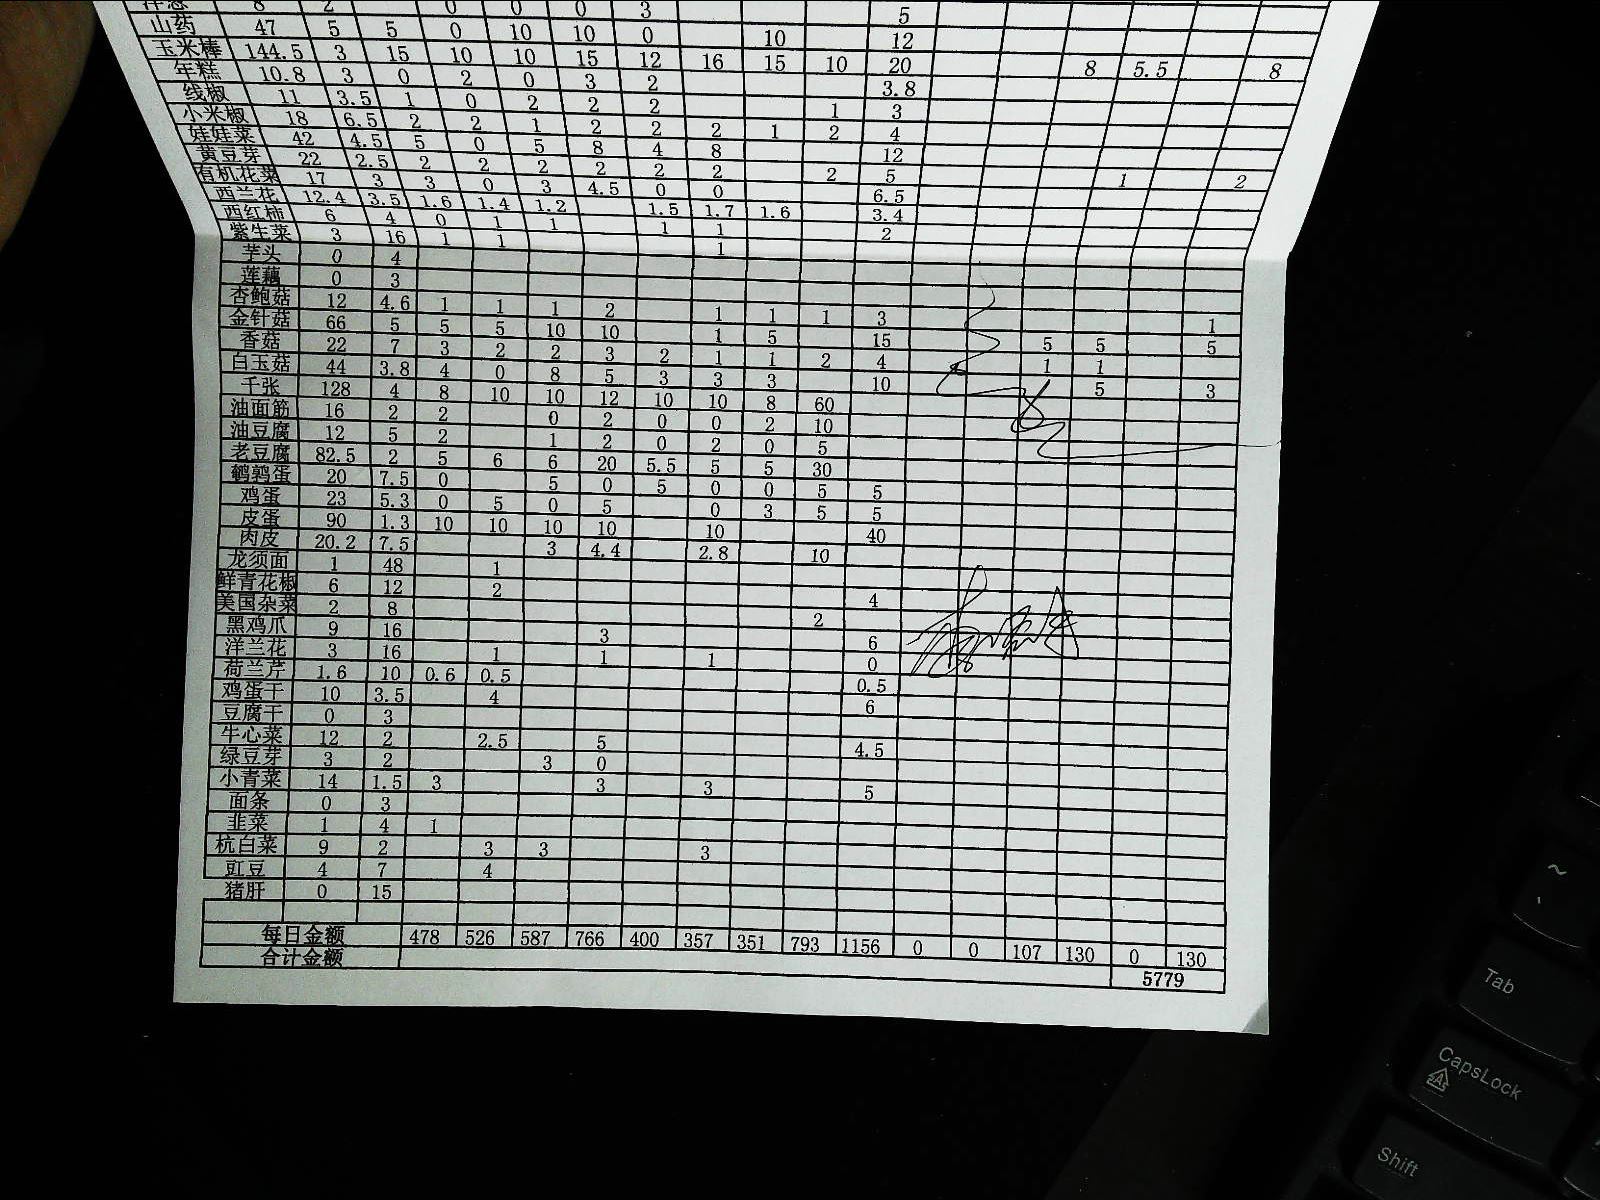 洋葱 8 2 0 0 0 3 5
山药 47 5 5 0 10 10 0 10 12
玉米棒 144.5 3 15 10 10 15 12 16 15 10 20 8 5.5 8
年糕 10.8 3 0 2 0 3 2 3.8
线椒 11 3.5 1 0 2 2 2 1 3
小米椒 18 6.5 2 2 1 2 2 2 1 2 4
娃娃菜 42 4.5 5 0 5 8 4 8 12
黄豆芽 22 2.5 2 2 2 2 2 2 2 5 1 2
有机花菜 17 3 3 0 3 4.5 0 0 6.5
西兰花 12.4 3.5 1.6 1.4 1.2 1.5 1.7 1.6 3.4
西红柿 6 4 0 1 1 1 1 2
紫生菜 3 16 1 1 1
芋头 0 4
莲藕 0 3
杏鲍菇 12 4.6 1 1 1 2 1 1 1 3 1
金针菇 66 5 5 5 10 10 1 5 15 5 5 5
香菇 22 7 3 2 2 3 2 1 1 2 4 1 1
白玉菇 44 3.8 4 0 8 5 3 3 3 10 5 3
千张 128 4 8 10 10 12 10 10 8 60
油面筋 16 2 2 0 2 0 0 2 10
油豆腐 12 5 2 1 2 0 2 0 5
老豆腐 82.5 2 5 6 6 20 5.5 5 5 30
鹌鹑蛋 20 7.5 0 5 0 5 0 0 5 5
鸡蛋 23 5.3 0 5 0 5 0 3 5 5
皮蛋 90 1.3 10 10 10 10 10 40
肉皮 20.2 7.5 3 4.4 2.8 10
龙须面 1 48 1
鲜青花椒 6 12 2 4
美国杂菜 2 8 2
黑鸡爪 9 16 3 6
洋兰花 3 16 1 1 1 0
荷兰芹 1.6 10 0.6 0.5 0.5
鸡蛋干 10 3.5 4 6
豆腐干 0 3
牛心菜 12 2 2.5 5 4.5
绿豆芽 3 2 3 0
小青菜 14 1.5 3 3 3 5
面条 0 3
韭菜 1 4 1
杭白菜 9 2 3 3 3
豇豆 4 7 4
猪肝 0 15
每日金额 478 526 587 766 400 357 351 793 1156 0 0 107 130 0 130
合计金额 5779
~
Tab
CapsLock
A
Shift